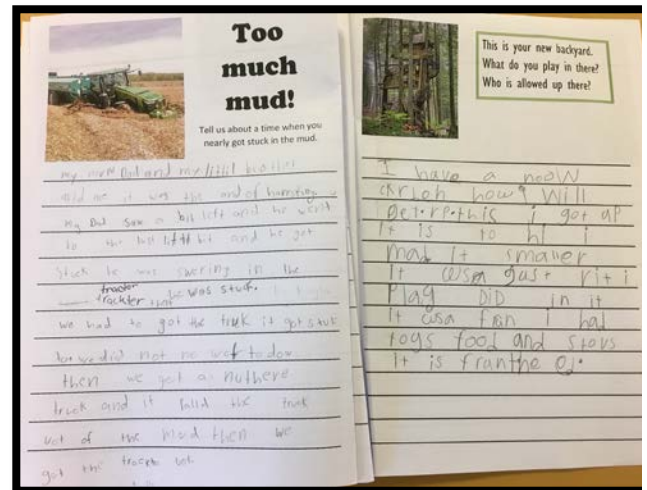 Too
much
mud!
Tell us about a time when you
nearly got stuck in the mud.
my Dad and my littil brother
and me it was the end of
My Dad saw a bit left and he went
to the last littl bit and he got
stuck he was swering in the
tractor
trackter he was stuck.
we had to got the truk it got stuk
we did not no wot to do
then we got a nuthere
truck and it the truk
uot of the mud then we
got the
This is your new backyard.
What do you play in there?
Who is allowed up there?
I have a neow
how Will
this i got up
It is to hi i
mad It smaller
It cwsa gust rit i
Play DiD in it
It cwsa fran i had
toys food and stovs
It is